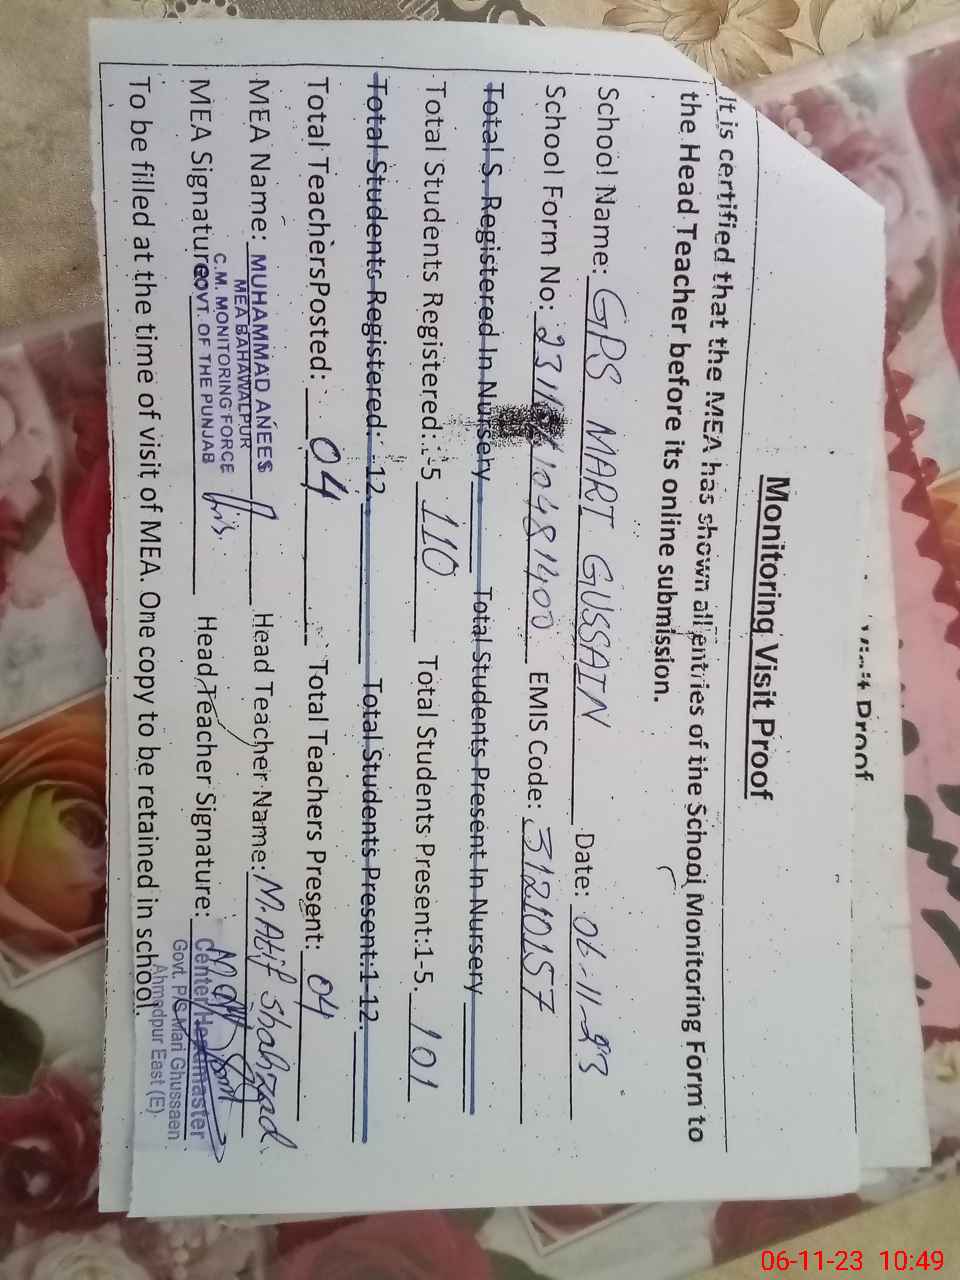 Visit Proof
Monitoring Visit Proof
It is certified that the MEA has shown all entries of the School Monitoring Form to
the Head Teacher before its online submission.
School Name: GPS MARI GUSSAIN Date: 06-11-23
School Form No: EMIS Code: 31210157
Total S Registered In Nursery Total Students Present In Nursery
Total Students Registered: -5 110 Total Students Present:1-5. 101
Total Students Registered: -12. Total Students Present:1-12.
Total TeachersPosted: 04 Total Teachers Present: 04
MEA Name: MUHAMMAD ANEES Head Teacher Name: M. Atif Shahzad
MEA BAHAWALPUR
C.M. MONITORING FORCE
MEA Signature GOVT. OF THE PUNJAB Head Teacher Signature:
Center Headmaster
Govt. P/S Mari Ghussaen
Ahmadpur East (E)
To be filled at the time of visit of MEA. One copy to be retained in school.
06-11-23 10:49